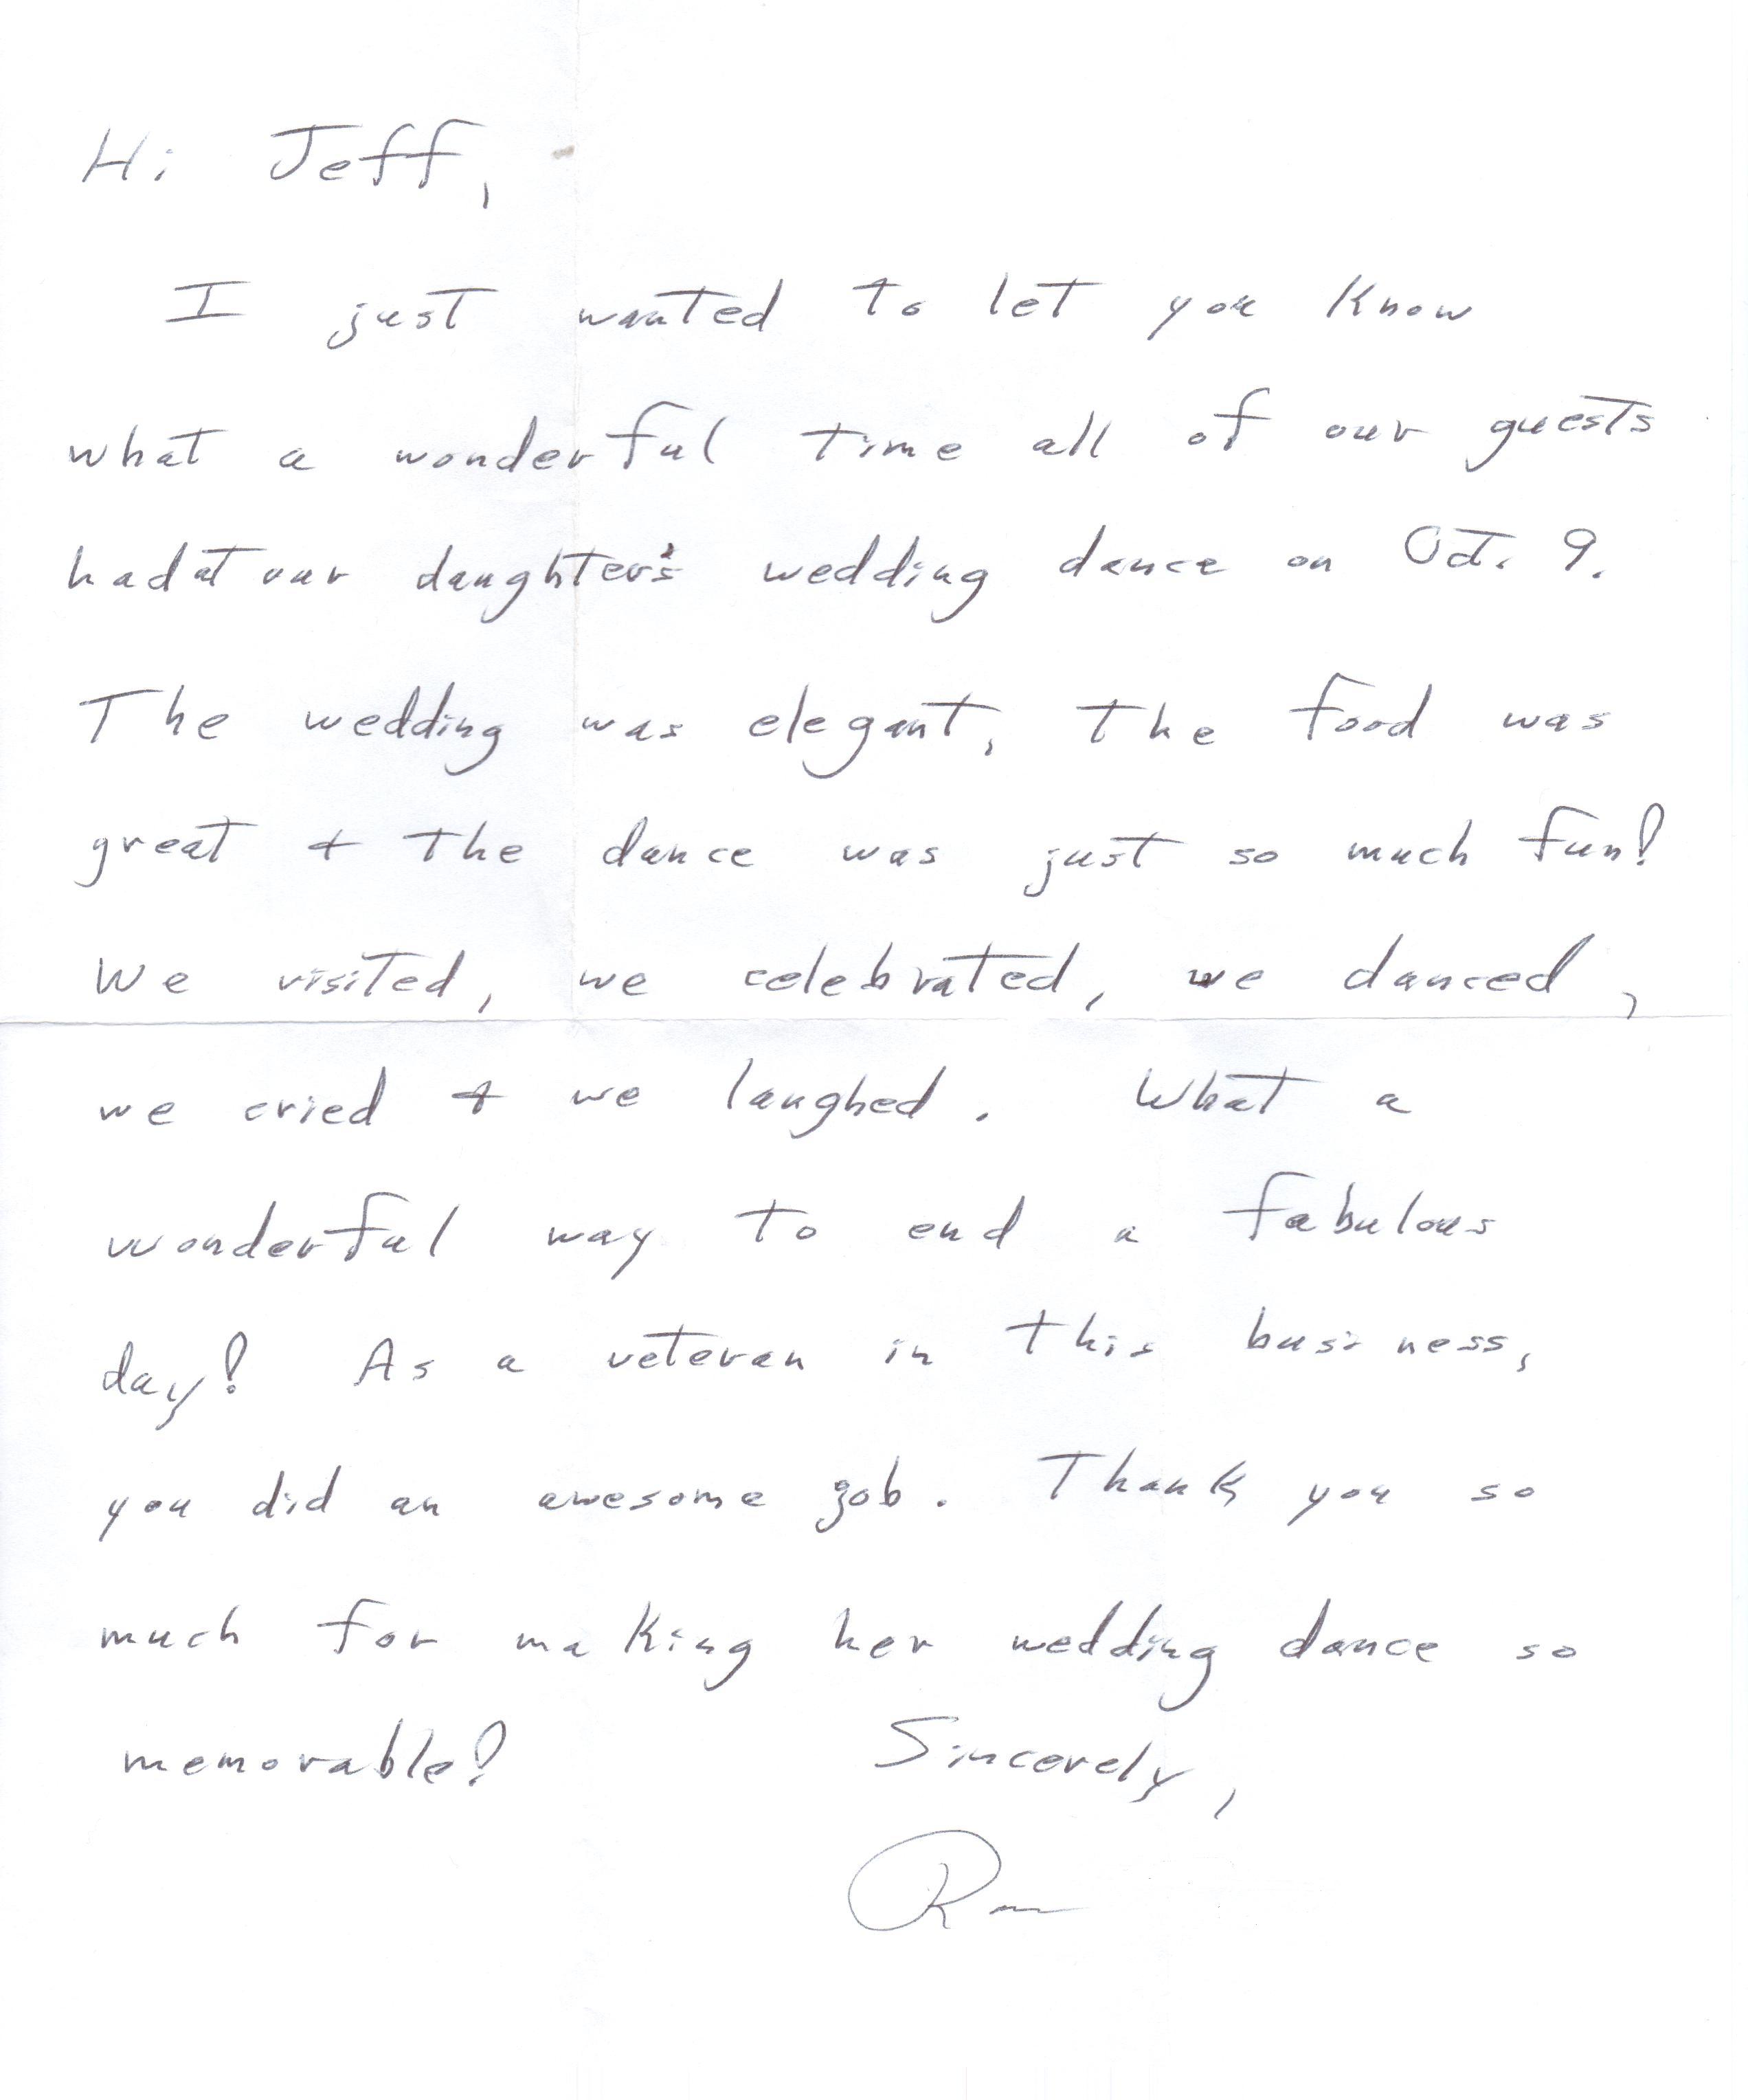 Hi Jeff,
I just wanted to let you know
what a wonderful time all of our guests
had at our daughter's wedding dance on Oct. 9.
The wedding was elegant, the food was
great + the dance was just so much fun!
We visited, we celebrated, we danced,
we cried + we laughed. What a
wonderful way to end a fabulous
day! As a veteran in this business,
you did an awesome job. Thank you so
much for making her wedding dance so
memorable!
Sincerely,